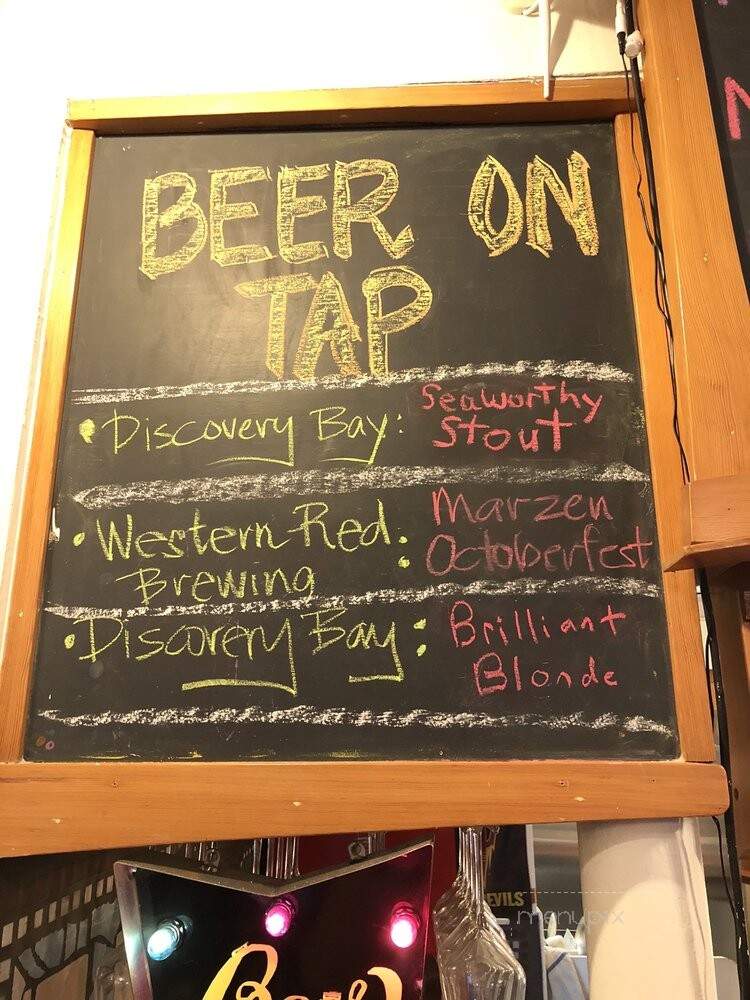 BEER ON
TAP
• Discovery Bay: Seaworthy
Stout
• Western Red : Marzen
Brewing Octoberfest
• Discovery Bay: Brilliant
Blonde
EVILS
menupix